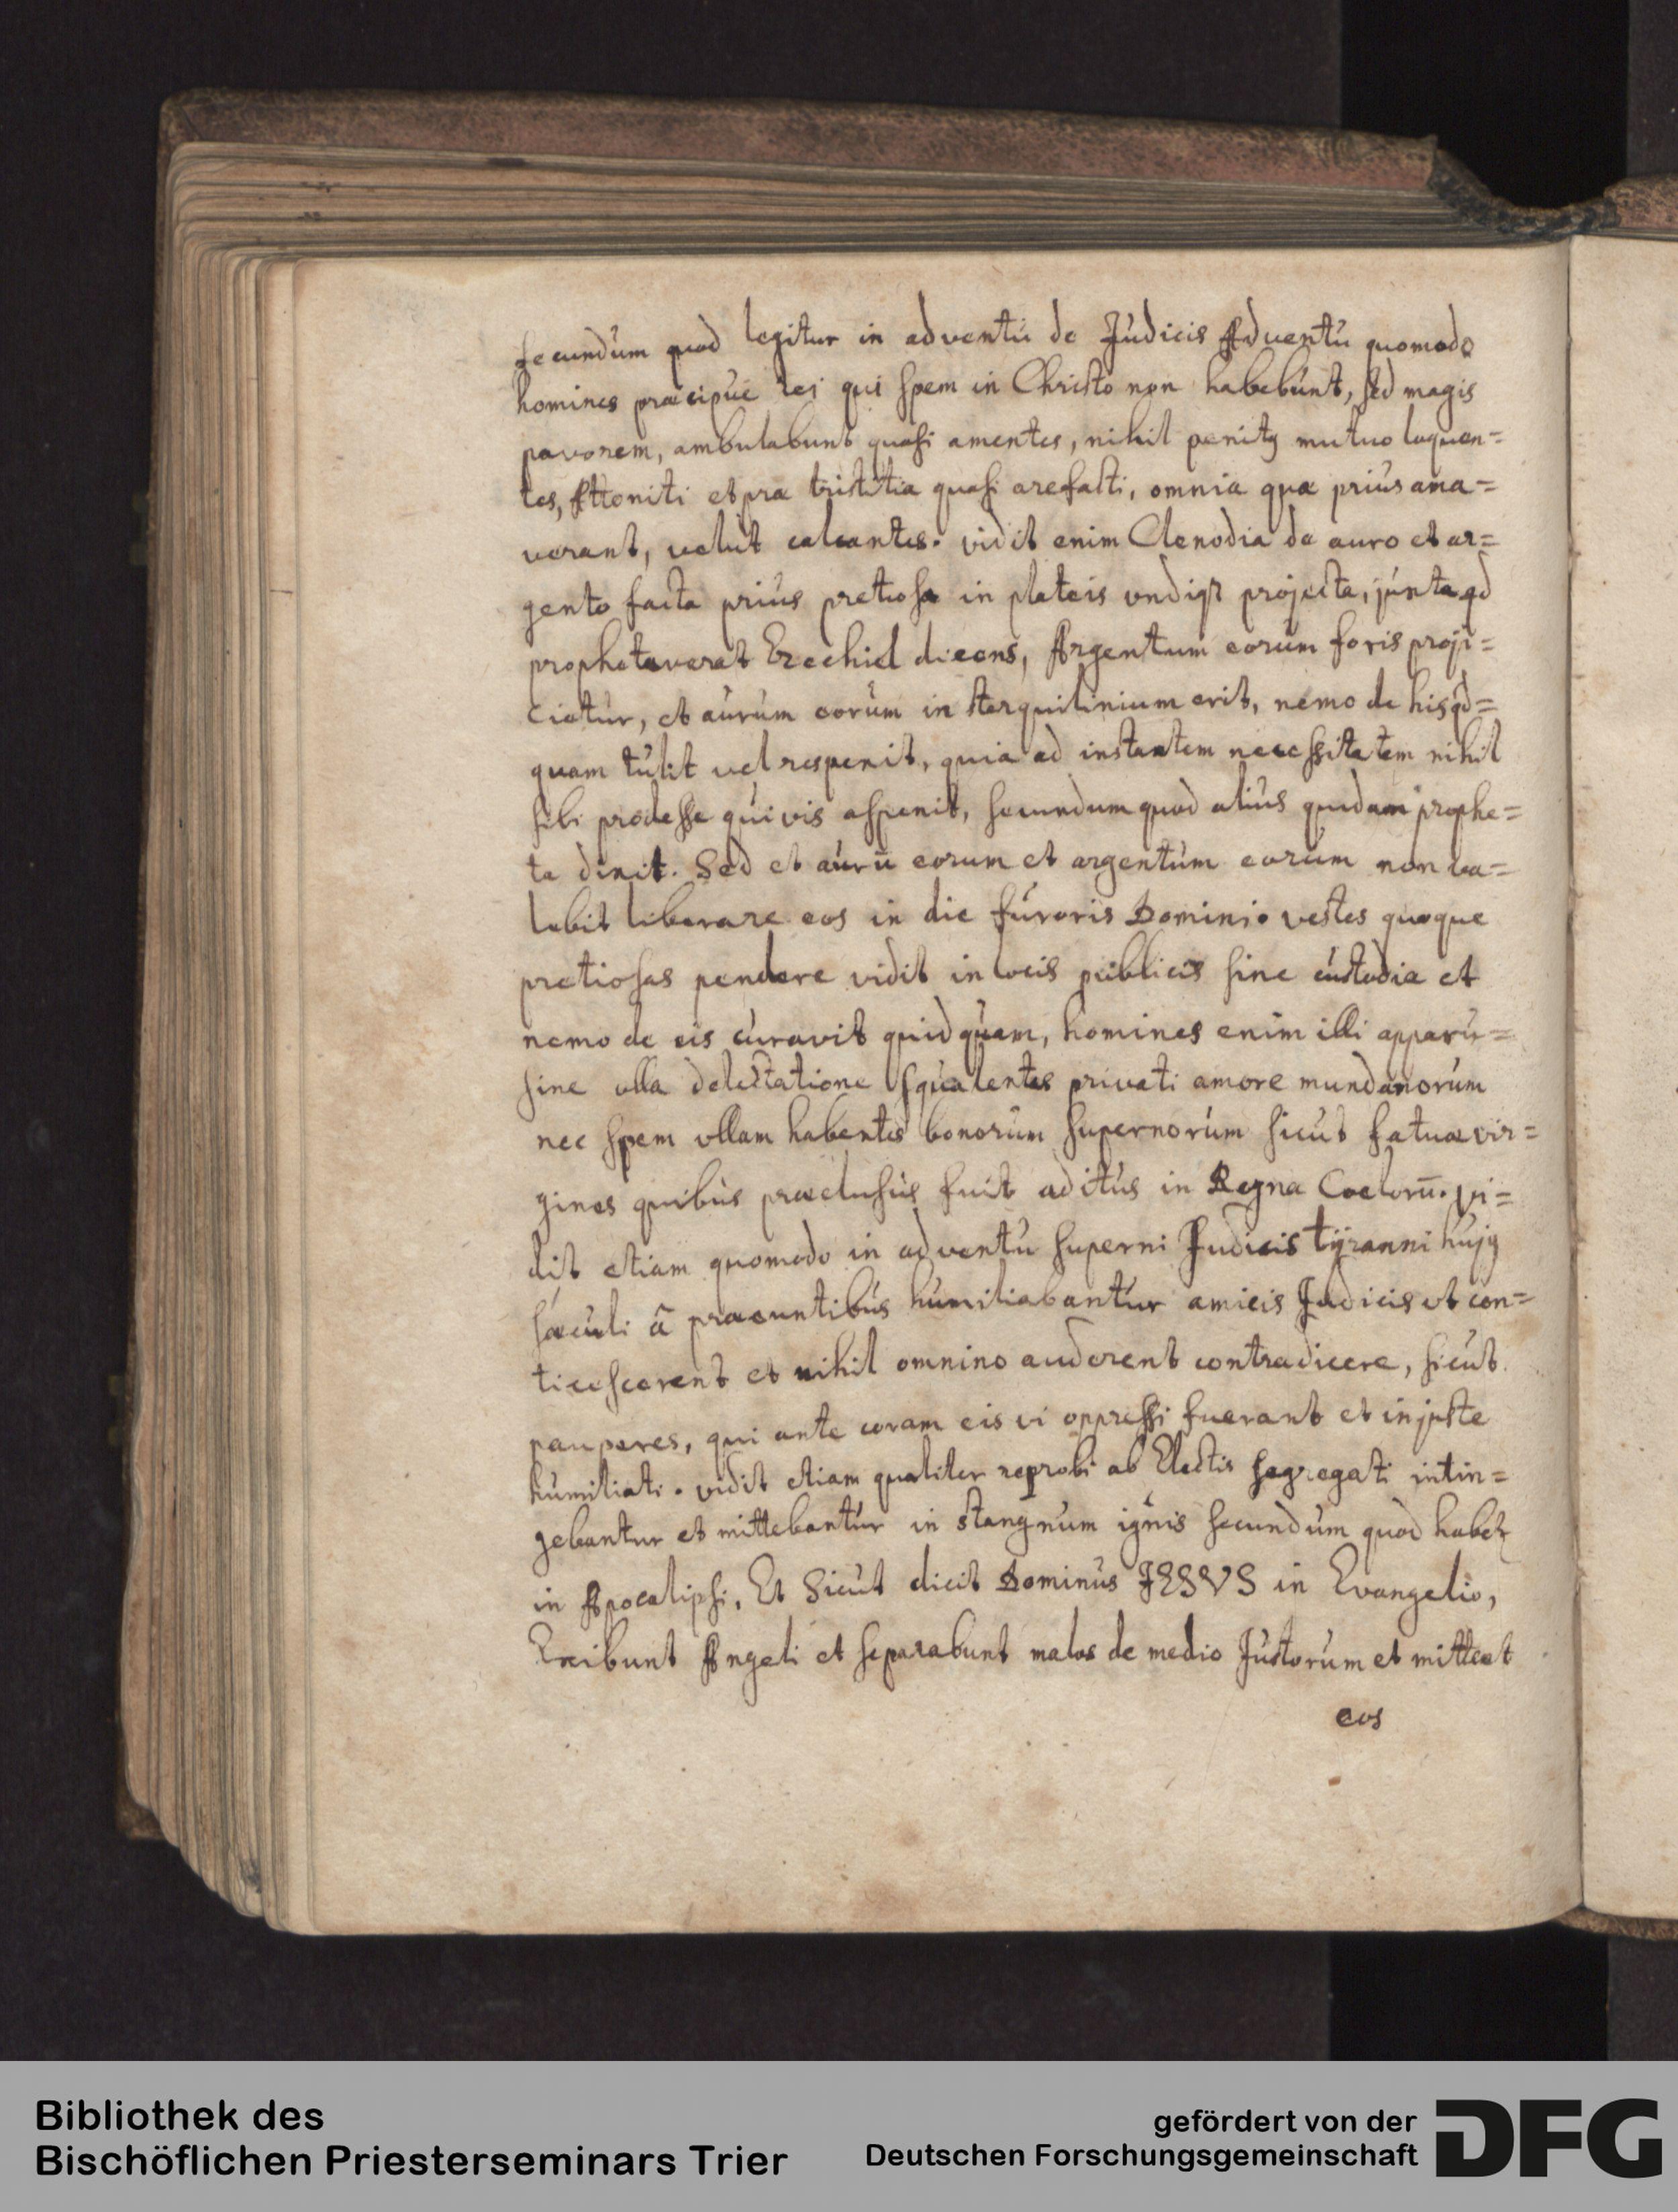 secundum quod legitur in adventu de Judicis Adventu quomodo
homines præcipue rei qui spem in Christo non habebunt, sed magis
pavorem, ambulabunt quasi amentes, nihil penitꝰ mutuo loquen=
tes, Attoniti et præ tristitia quasi arefacti, omnia quæ prius ama=
verant, velut calcantes. vidit enim Clenodia de auro et ar=
gento facta prius pretiosa in plateis undiqꝫ projecta, juxta qd
prophetaverat Ezechiel dicens, Argentum eorum foris proji=
cietur, et aurum eorum in sterquilinium erit, nemo de his qd=
quam tulit vel respexit, quia ad instantem necessitatem nihil
sibi prodesse quivis aspexit, secundum quod alius quidam prophe=
ta dixit. Sed et aurū eorum et argentum eorum non va=
lebit liberare eos in die furoris Domini. vestes quoque
pretiosas pendere vidit in locis publicis sine custodia et
nemo de eis curavit quidquam, homines enim illi apparu=
sine ulla delectatione squalentes privati amore mundanorum
nec spem ullam habentes bonorum supernorum sicut fatuæ vir=
gines quibus præclusus fuit aditus in Regna Coelorū. vi=
dit etiam quomodo in adventu superni Judicis tÿranni hujꝰ
sæculi â præeuntibus humiliabantur amicis Judicis ut con=
ticescerent et nihil omnino auderent contradicere, sicut
pauperes, qui ante coram eis vi oppressi fuerant et injuste
humiliati. vidit etiam qualiter reprobi ab Electis segregati intin=
gebantur et mittebantur in stangnum ignis secundum quod habetꝛ
in Apocalipsi, Et Sicut dicit Dominus JESVS in Evangelio,
Exibunt Angeli et separabunt malos de medio Justorum et mittent
eos
Bibliothek des
Bischöflichen Priesterseminars Trier
gefördert von der
Deutschen Forschungsgemeinschaft
DFG